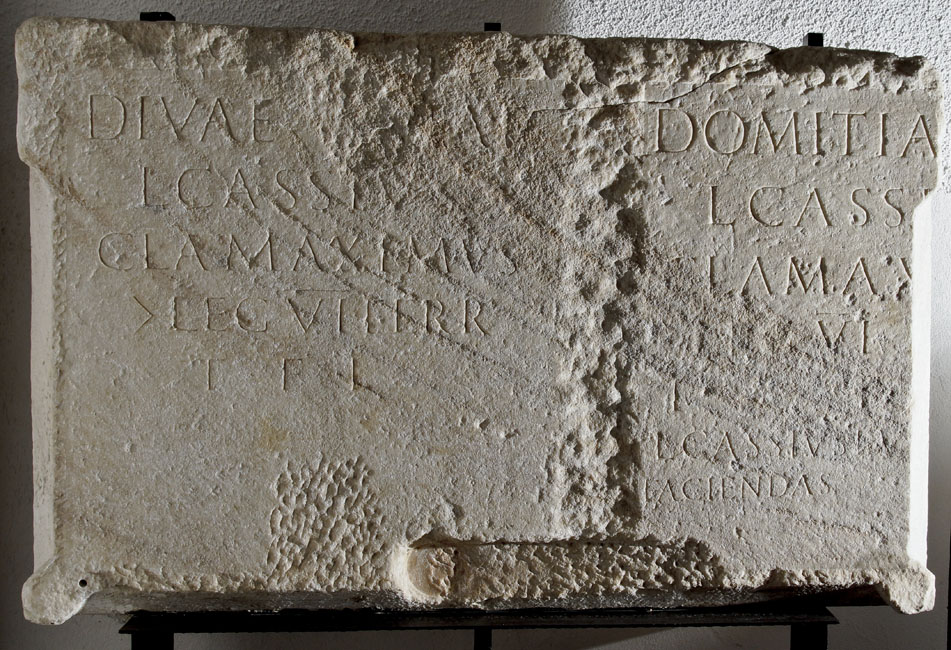 DIVAE
L CASSI
CLA MAXIMVS
>LEG VI FERR
T F I
DOMITIA
L CASSI
CLA MAX
VI
L CASSIVS
FACIENDAS